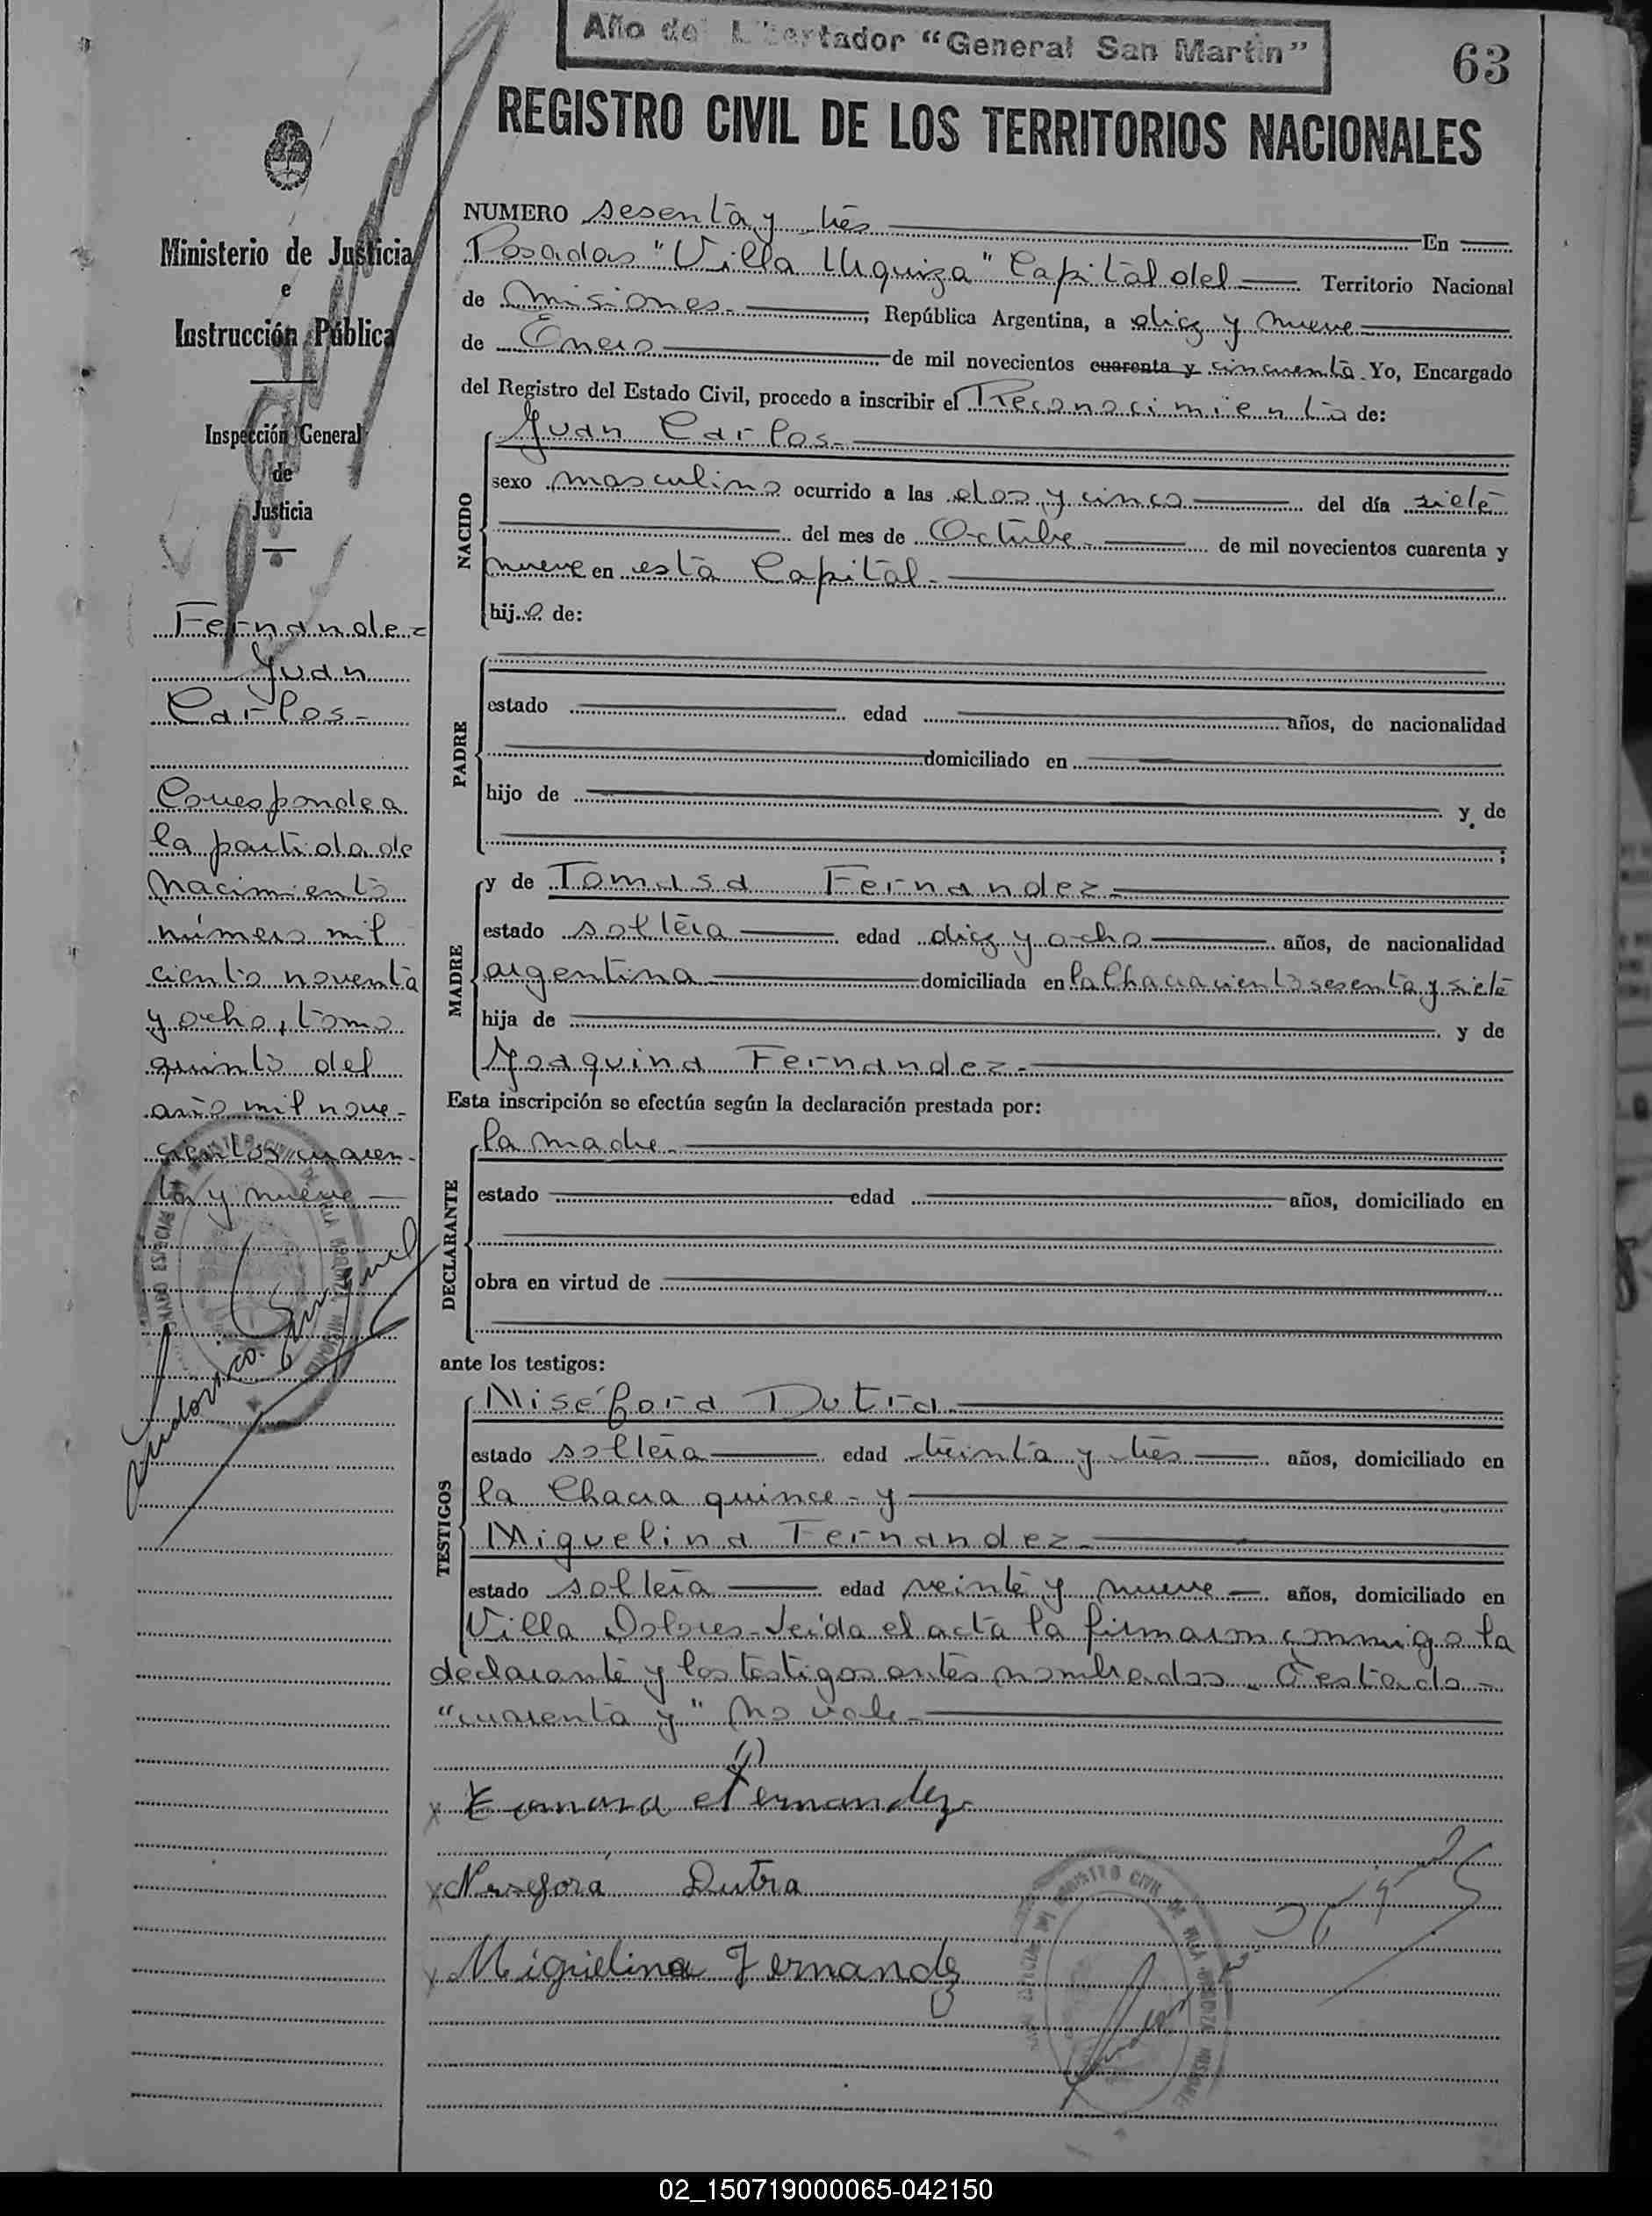 Año del Libertador "General San Martín"
63
REGISTRO CIVIL DE LOS TERRITORIOS NACIONALES
Ministerio de Justicia
e
Instrucción Pública
Inspección General
de
Justicia
Fernandez
Juan
Carlos-
Corresponde a
la partida de
nacimiento
número mil
ciento noventa
y ocho, tomo
quinto del
año mil nove-
cientos cuaren-
ta y nueve
NUMERO sesenta y tres En
Posadas "Villa Urquiza" Capital del Territorio Nacional
de Misiones.- , República Argentina, a diez y nueve
de Enero de mil novecientos cuarenta y cincuenta. Yo, Encargado
del Registro del Estado Civil, procedo a inscribir el Reconocimiento de:
Juan Carlos.-
NACIDO
sexo masculino ocurrido a las dos y cinco del día siete
del mes de Octubre.- de mil novecientos cuarenta y
nueve en esta Capital.-
hijo de:
PADRE
estado edad años, de nacionalidad
domiciliado en
hijo de y de
;
MADRE
y de Tomasa Fernandez.-
estado soltera edad diez y ocho años, de nacionalidad
argentina domiciliada en la Chacra ciento sesenta y siete
hija de y de
Joaquina Fernandez.-
Esta inscripción se efectúa según la declaración prestada por:
DECLARANTE
la madre.-
estado edad años, domiciliado en
obra en virtud de
ante los testigos:
TESTIGOS
Niséfora Dutra.-
estado soltera edad treinta y tres años, domiciliado en
la Chacra quince - y
Miguelina Fernandez.-
estado soltera edad veinte y nueve años, domiciliado en
Villa Dolores.-Leída el acta la firmaron conmigo la
declarante y los testigos antes nombrados.- Testado-
"cuarenta y" no vale.-
x Tomasa Fernandez
x Nisefora Dutra
x Miguielina Fernandez
REGISTRO CIVIL DE VILLA URQUIZA MISIONES
02_150719000065-042150